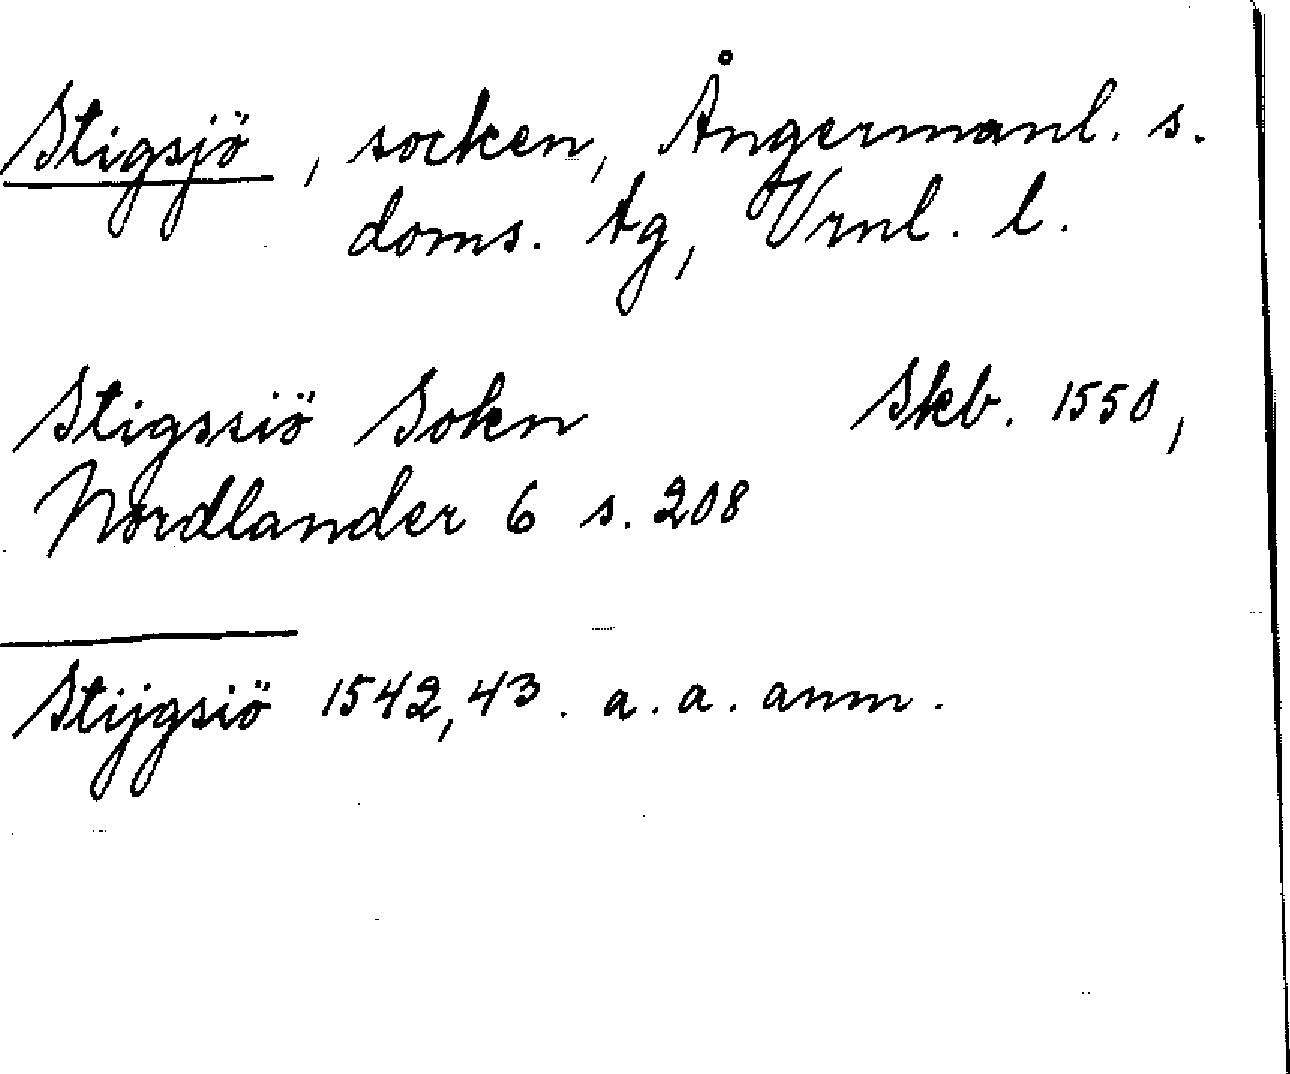 Stigsjö, socken, Ångermanl. s.
doms. tg, Vrnl. l.
Stigssiö Sokn Skb. 1550,
Nordlander 6 s. 208
Stijgsiö 1542,43. a. a. anm.